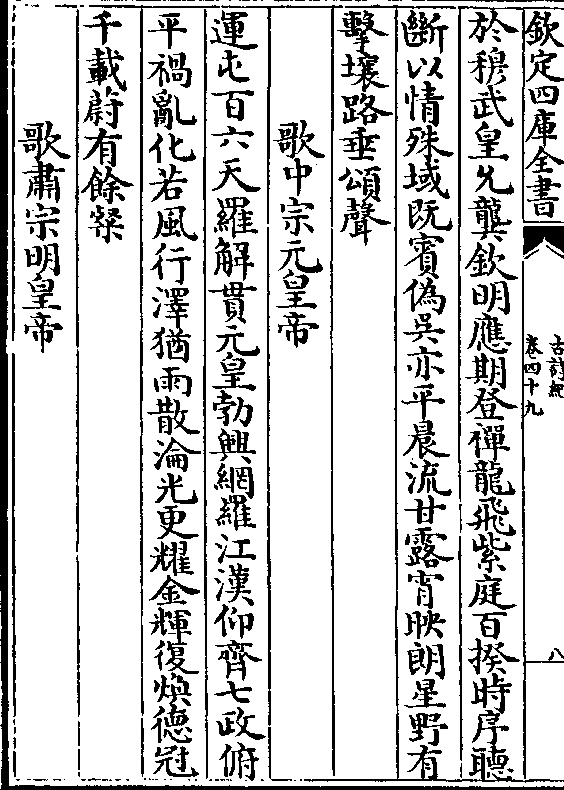 欽定四庫全書
古詩紀
卷四十九
八
於穆武皇允龔欽明應期登禪龍飛紫庭百揆時序聽
斷以情殊域既賓偽吳亦平晨流甘露宵映朗星野有
擊壤路垂頌聲
歌中宗元皇帝
運屯百六天羅解貫元皇勃興網羅江漢仰齊七政俯
平禍亂化若風行澤猶雨散淪光更耀金輝復煥德冠
千載蔚有餘粲
歌肅宗明皇帝